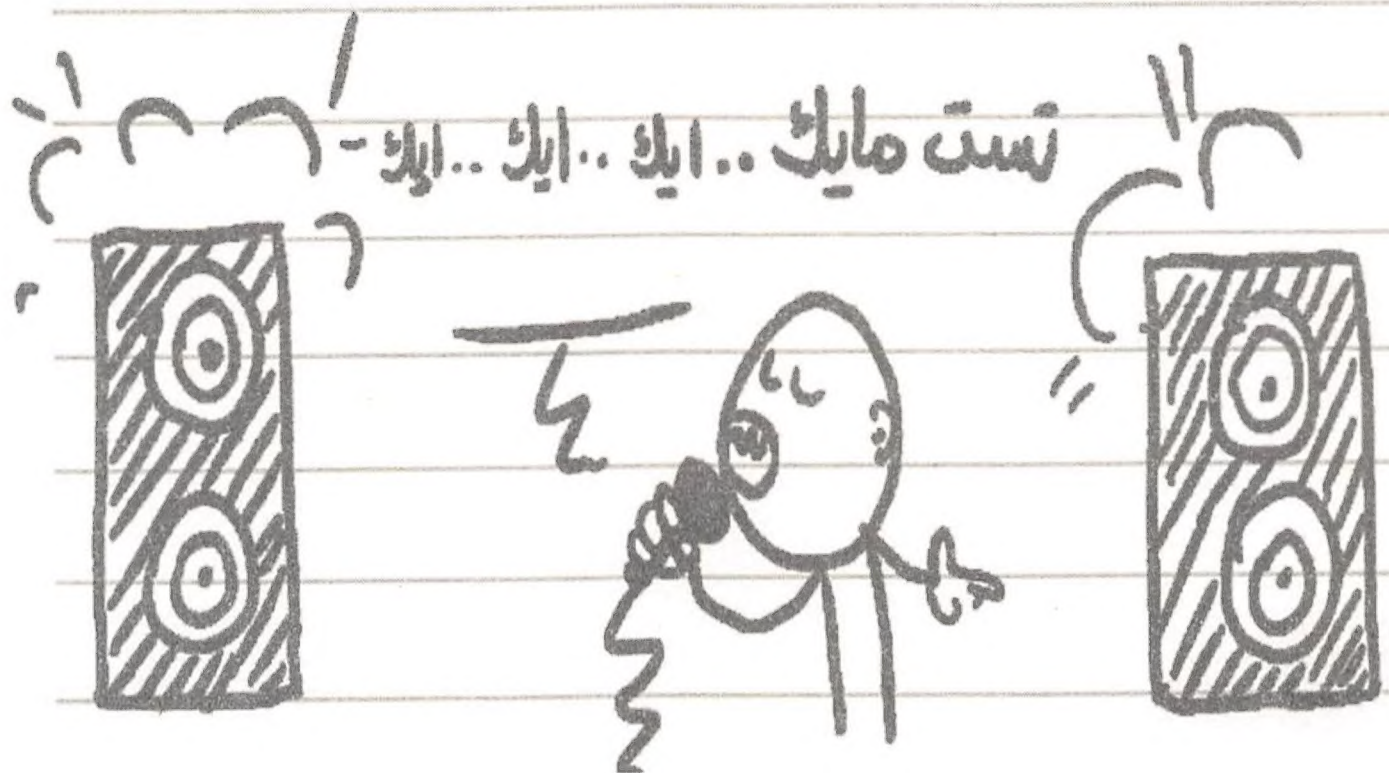 تست مايك .. ايك .. ايك .. ايك -